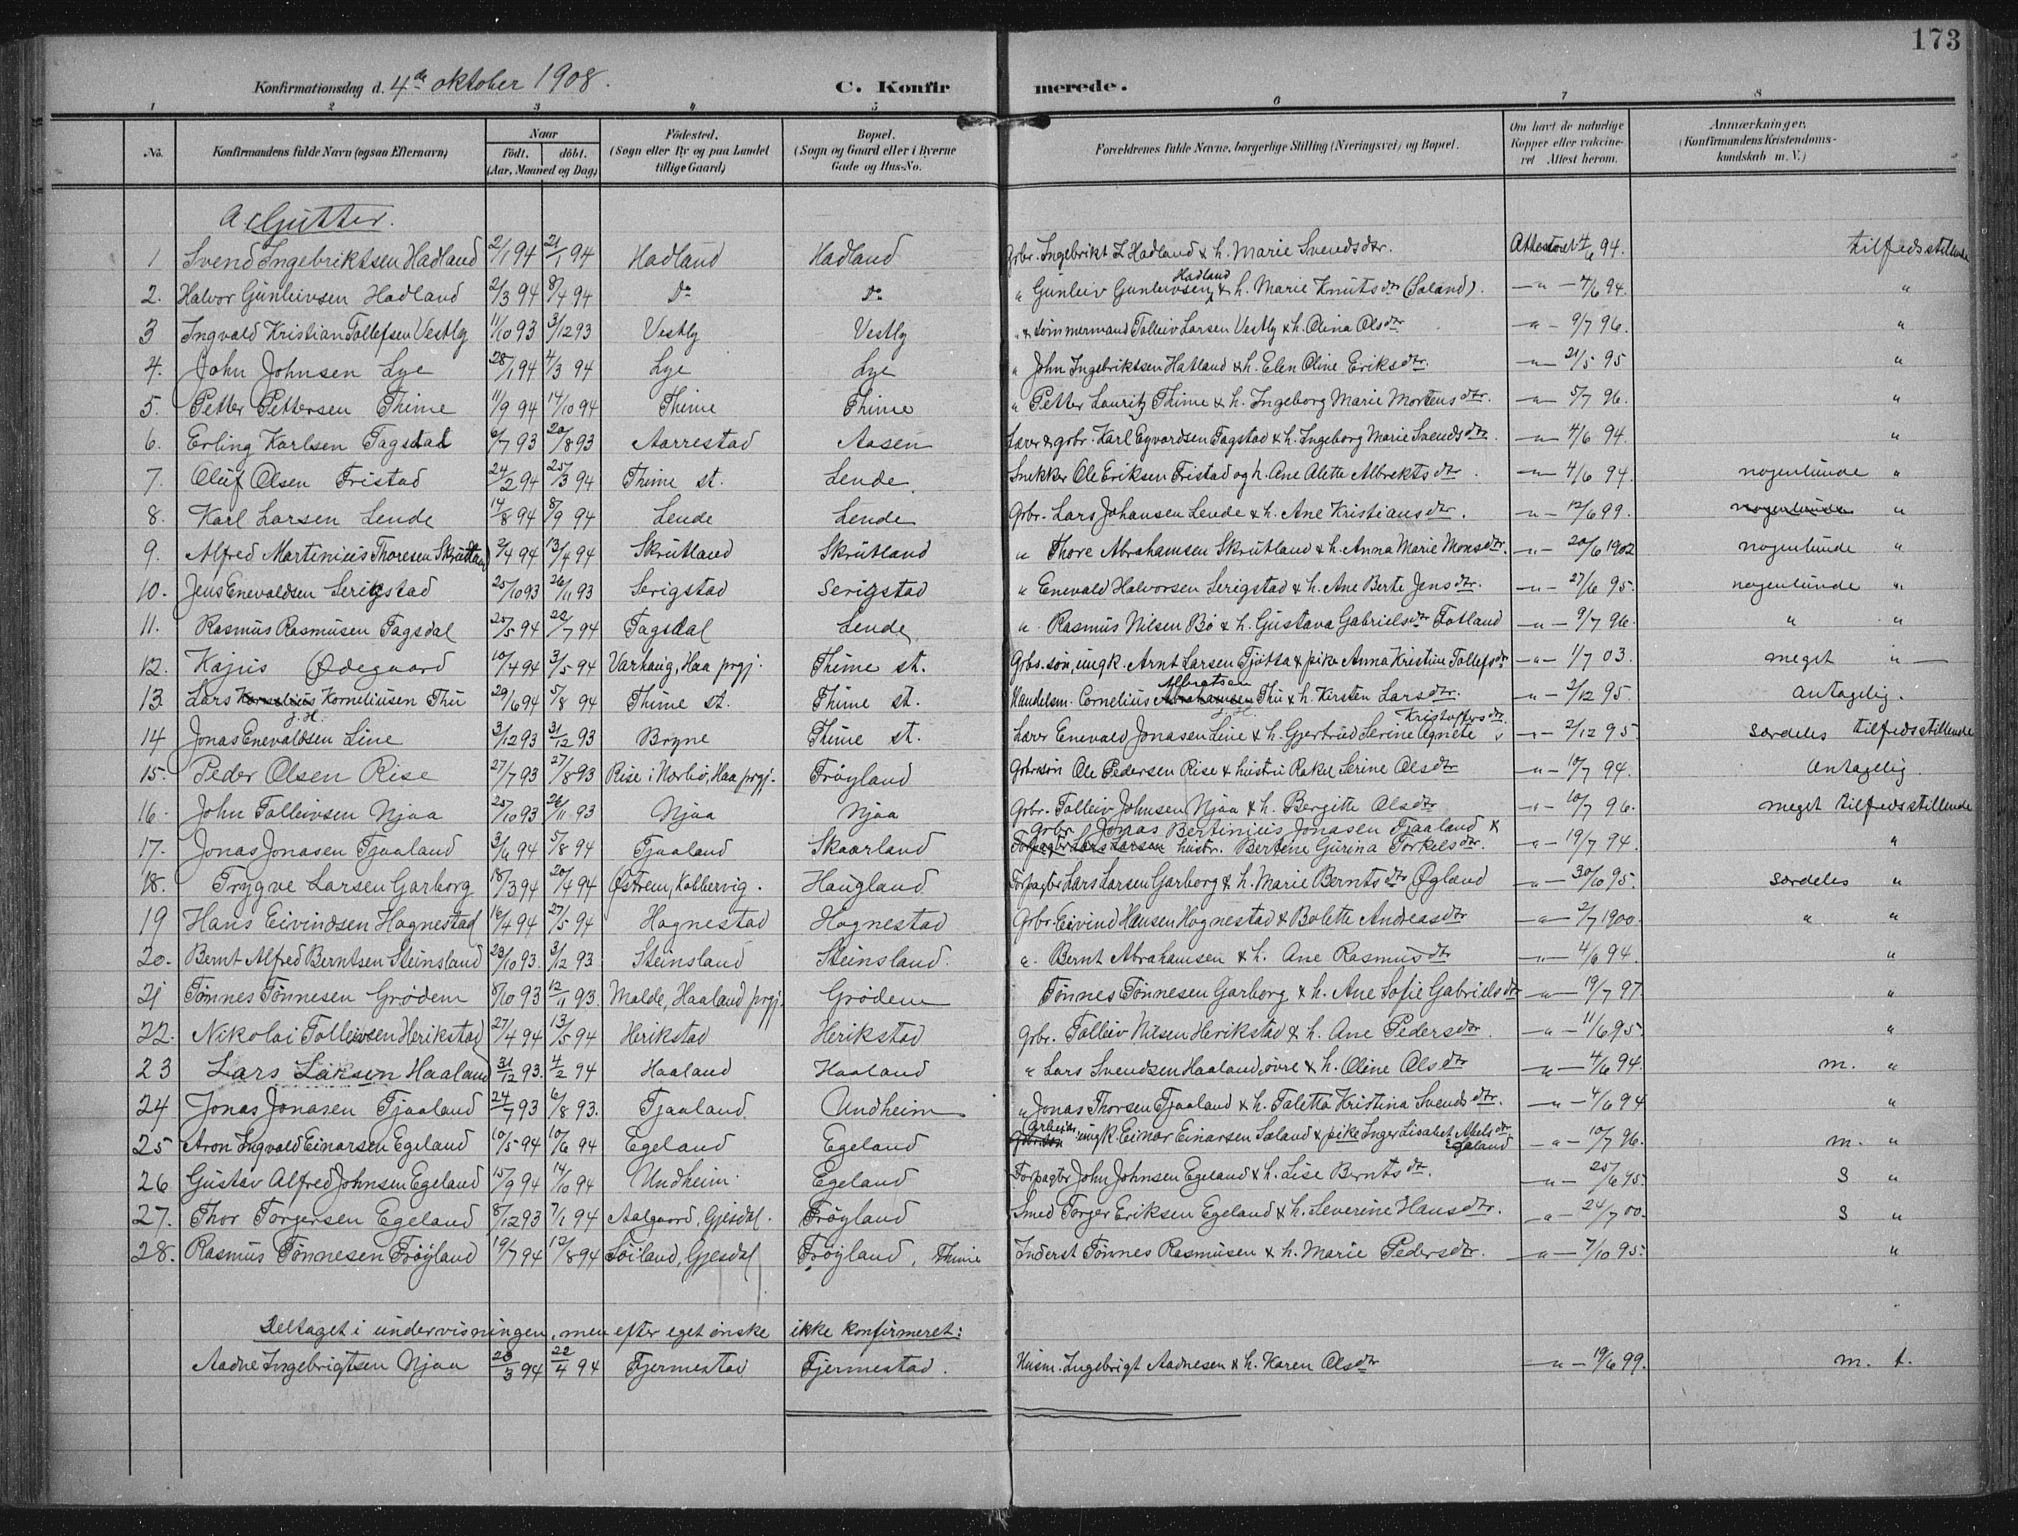 173
Konfirmationsdag d. 4de oktober 1908.
C. Konfirmerede.
1 2 3 4 5 6 7 8
No. Konfirmandens fulde Navn (ogsaa Efternavn) Naar født. døbt. (Aar, Maaned og Dag) Fødested. (Sogn eller By og paa Landet tillige Gaard) Bopæl. (Sogn og Gaard eller i Byerne Gade og Hus-No. Forældrenes fulde Navne, borgerlige Stilling (Næringsvei) og Bopæl. Om havt de naturlige Kopper eller vakcineret Attest herom. Anmærkninger. (Konfirmandens Kristendomskundskab m. V.)
A. Gutter.
1 Svend Ingebriktsen Hadland 2/1 94 21/1 94 Hadland Hadland Grbr. Ingebrikt L Hadland & h. Marie Svendsdtr. Attesteret 4/6 94. tilfredsstillende
2. Halvor Gunleivsen Hadland 2/3 94 8/4 94 Do Do " Gunleiv Gunleivsen Hadland & h. Marie Knutsdtr (Saland). —"— 4/6 94. "
3 Ingvald Kristian Tollefsen Vestly 11/10 93 3/12 93 Vestly Vestly " & tømmermand Tolleiv Larsen Vestly & h. Olina Olsdtr —"— 9/7 96. "
4. John Johnsen Lye 28/1 94 4/3 94 Lye Lye " John Ingebriktsen Hatland & h. Elen Oline Eriksdtr. —"— 21/5 95 "
5. Petter Pettersen Thime 11/9 94 14/10 94 Thime Thime " Petter Lauritz Thime & h. Ingeborg Marie Mortensdtr. —"— 5/7 96. "
6. Erling Karlsen Fagstad 6/7 93 20/8 93 Aarrestad Aasen Lærer & grbr. Karl Eyvardsen Fagstad & h. Ingeborg Marie Svendsdtr. —"— 4/6 94. "
7. Oluf Olsen Fristad 24/2 94 25/3 94 Thime st. Lende Snekker Ole Eriksen Fristad og h. Ane Alette Albrektsdtr. —"— 4/6 94 nogenlunde "
8. Karl Larsen Lende 14/8 94 8/9 94 Lende Lende Grbr. Lars Johansen Lende & h. Ane Kristiansdtr. —"— 12/6 99. nogenlunde "
9. Alfred Martinius Thoresen Skrutland 2/4 94 13/4 94 Skrutland Skrutland " Thore Abrahamsen Skrutland & h. Anna Marie Monsdtr. —"— 20/6 1902 nogenlunde "
10. Jens Enevaldsen Serigstad 25/10 93 26/11 93 Serigstad Serigstad " Enevald Halvorsen Serigstad & h. Ane Berte Jensdtr. —"— 27/6 95. nogenlunde "
11. Rasmus Rasmusen Fagsdal 25/5 94 22/7 94 Fagsdal Lende " Rasmus Nilsen Bø & h. Gustava Gabrielsdtr Fotland —"— 9/7 96. " "
12. Kajus Ødegaard 10/4 94 3/5 94 Varhaug, Haa prgj. Thime st. Grbs. søn, ungk. Arnt Larsen Tjøtta & pike Anna Kristine Tollefsdtr —"— 1/7 03. meget "
13. Lars Kornelius Korneliusen Thu J. H. 29/6 94 5/8 94 Thime st. Thime st. Handelsm. Cornelius Abrahamsen Albretsen Thu & h. Kirsten Larsdtr. J. H. —"— 2/12 95. antagelig.
14 Jonas Enevaldsen Line 3/12 93 31/12 93 Bryne Thime st. Lærer Enevald Jonasen Line & h. Gjertrud Serine Agnete Kristoffersdtr. —"— 2/12 95. særdeles tilfredsstillende
15. Peder Olsen Rise 27/7 93 27/8 93 Rise i Nærbø, Haa prgj. Frøyland Grbrsøn Ole Pedersen Rise & hustru Rakel Serine Olsdtr —"— 10/7 94. antagelig.
16. John Tolleivsen Njaa 25/10 93 26/11 93 Njaa Njaa Grbr. Tolleiv Johnsen Njaa & h. Bergitte Olsdtr —"— 10/7 96. meget tilfredsstillende
17. Jonas Jonasen Tjaaland 3/6 94 5/8 94 Tjaaland Skaarland Forpagter Lars Larsen Grbr. Jonas Bertinius Jonasen Tjaaland & hustr. Bertine Gurina Torkelsdtr. —"— 19/7 94. "
18. Trygve Larsen Garborg 18/3 94 20/4 94 Østrem, Kobbervig. Haugland Forpagter Lars Larsen Garborg & h. Marie Berntsdtr Øgland —"— 30/10 95. særdeles "
19 Hans Eivindsen Hognestad 16/4 94 27/5 94 Hognestad Hognestad Grbr. Eivind Hansen Hognestad & Bolette Andreasdtr —"— 2/7 1900. " "
20. Bernt Alfred Berntsen Steinsland 23/10 93. 3/12 93 Steinsland Steinsland. " Bernt Abrahamsen & h. Ane Rasmusdtr —"— 4/6 94. "
21 Tønnes Tønnesen Grødem 8/10 93 12/11 93. Malde, Haaland prgj. Grødem Tønnes Tønnesen Garborg & h. Ane Sofie Gabrielsdtr —"— 19/7 97. "
22. Nikolai Tolleivsen Herikstad 27/4 94 13/5 94 Herikstad Herikstad grbr. Tolleiv Nilsen Herikstad & h. Ane Pedersdtr. —"— 11/6 95. "
23 Lars Larsen Haaland 31/12 93. 4/2 94 Haaland Haaland " Lars Svendsen Haaland, øvre & h. Oline Olsdtr —"— 4/6 94. m. "
24 Jonas Jonasen Tjaaland 24/7 93 6/8 93. Tjaaland Undheim " Jonas Thorsen Tjaaland & h. Taletta Kristina Svendsdtr. —"— 4/6 94 "
25 Aron Ingvald Einarsen Egeland 10/5 94 10/6 94 Egeland Egeland Grbrsøn Arbeider, ungk. Einar Einarsen Sæland & pike Inger Lisabet Abelsdtr Egeland —"— 10/7 96. m. "
26 Gustav Alfred Johnsen Egeland 15/9 94 14/10 94 Undheim. Egeland Forpagter John Johnsen Egeland & h. Lise Berntsdtr. —"— 25/6 95. s "
27. Thor Torgersen Egeland 8/12 93 7/1 94 Aalgaard, Gjesdal. Frøyland Smed Torger Eriksen Egeland & h. Severine Hansdtr. —"— 24/7 00. s "
28. Rasmus Tønnesen Frøyland 19/7 94 12/8 94 Søiland, Gjesdal Frøyland, Thime Inderst Tønnes Rasmusen & h. Marie Pedersdtr. —"— 7/10 95. "
Deltaget i undervisningen, men efter eget ønske ikke konfirmeret:
Aadne Ingebrigtsen Njaa 28/3 94 22/4 94 Fjermestad Fjermestad. Husm. Ingebrigt Aadnesen & h. Karen Olsdtr —"— 19/6 99. m. t.